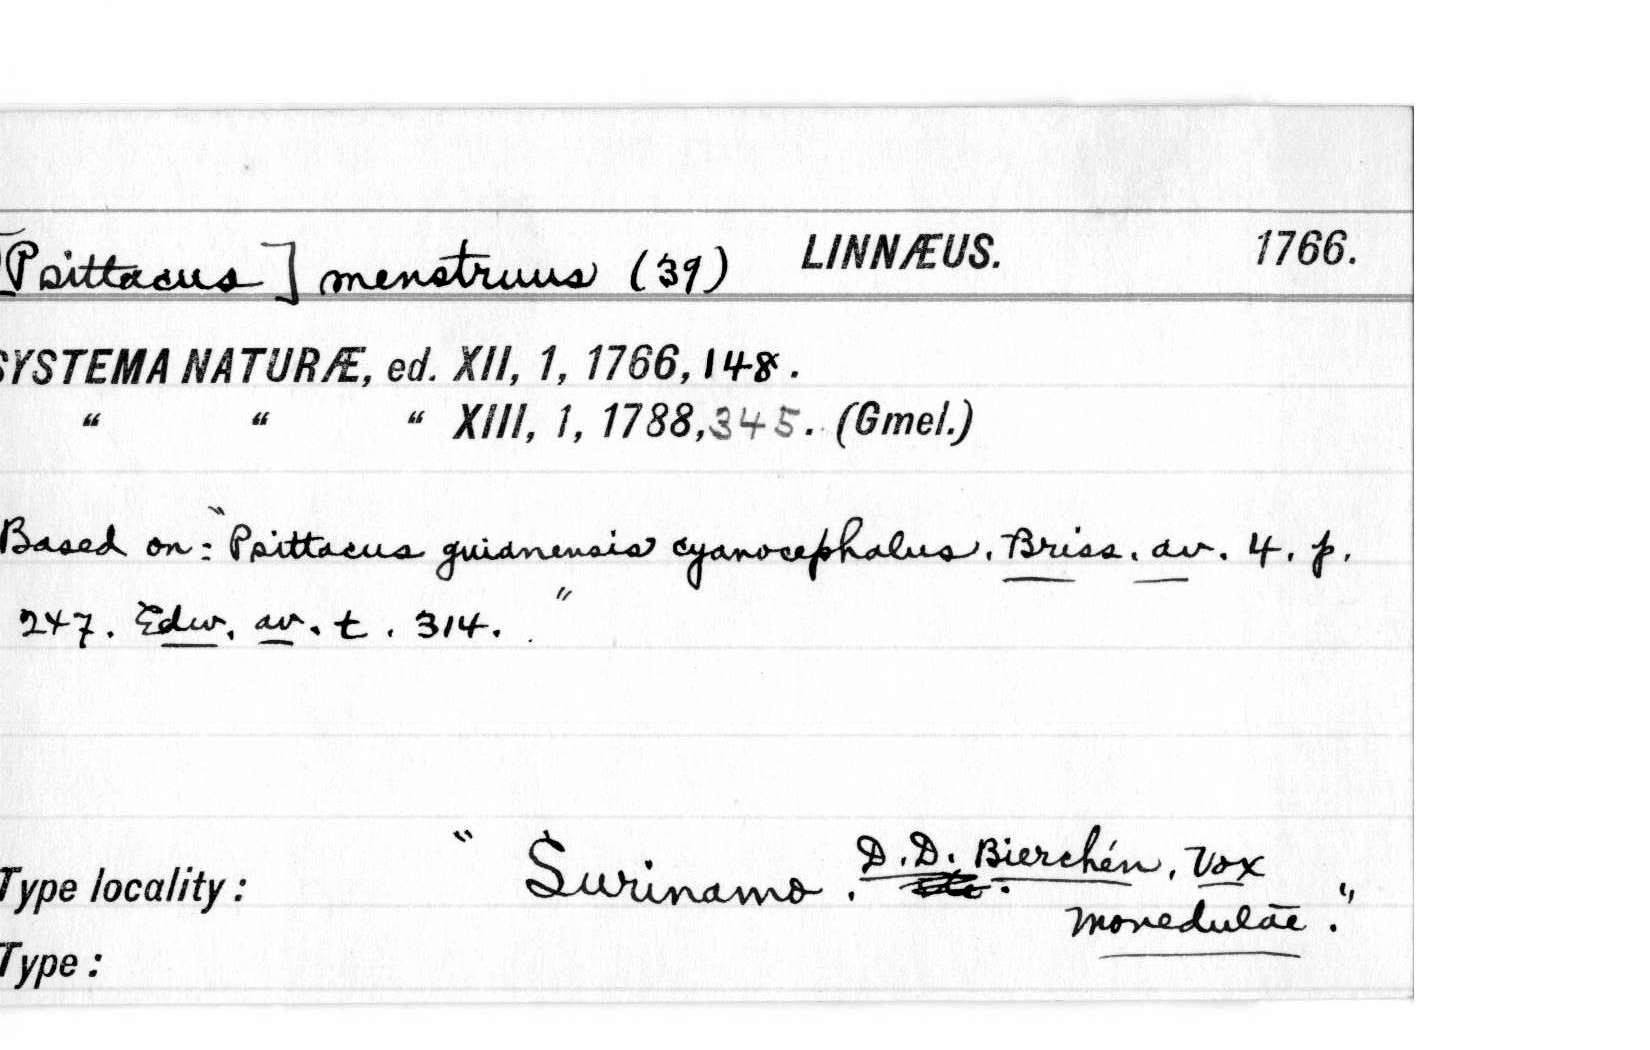 [Psittacus] menstruus (39) LINNÆUS. 1766.
SYSTEMA NATURÆ, ed. XII, 1, 1766, 148.
“ “ “ XIII, 1, 1788, 345. (Gmel.)
Based on: "Psittacus guianensis cyanocephalus. Briss. av. 4. p.
247. Edw. av. t. 314."
Type locality: "Surinamo. D. D. Bierchén, Vox
monedulæ."
Type: